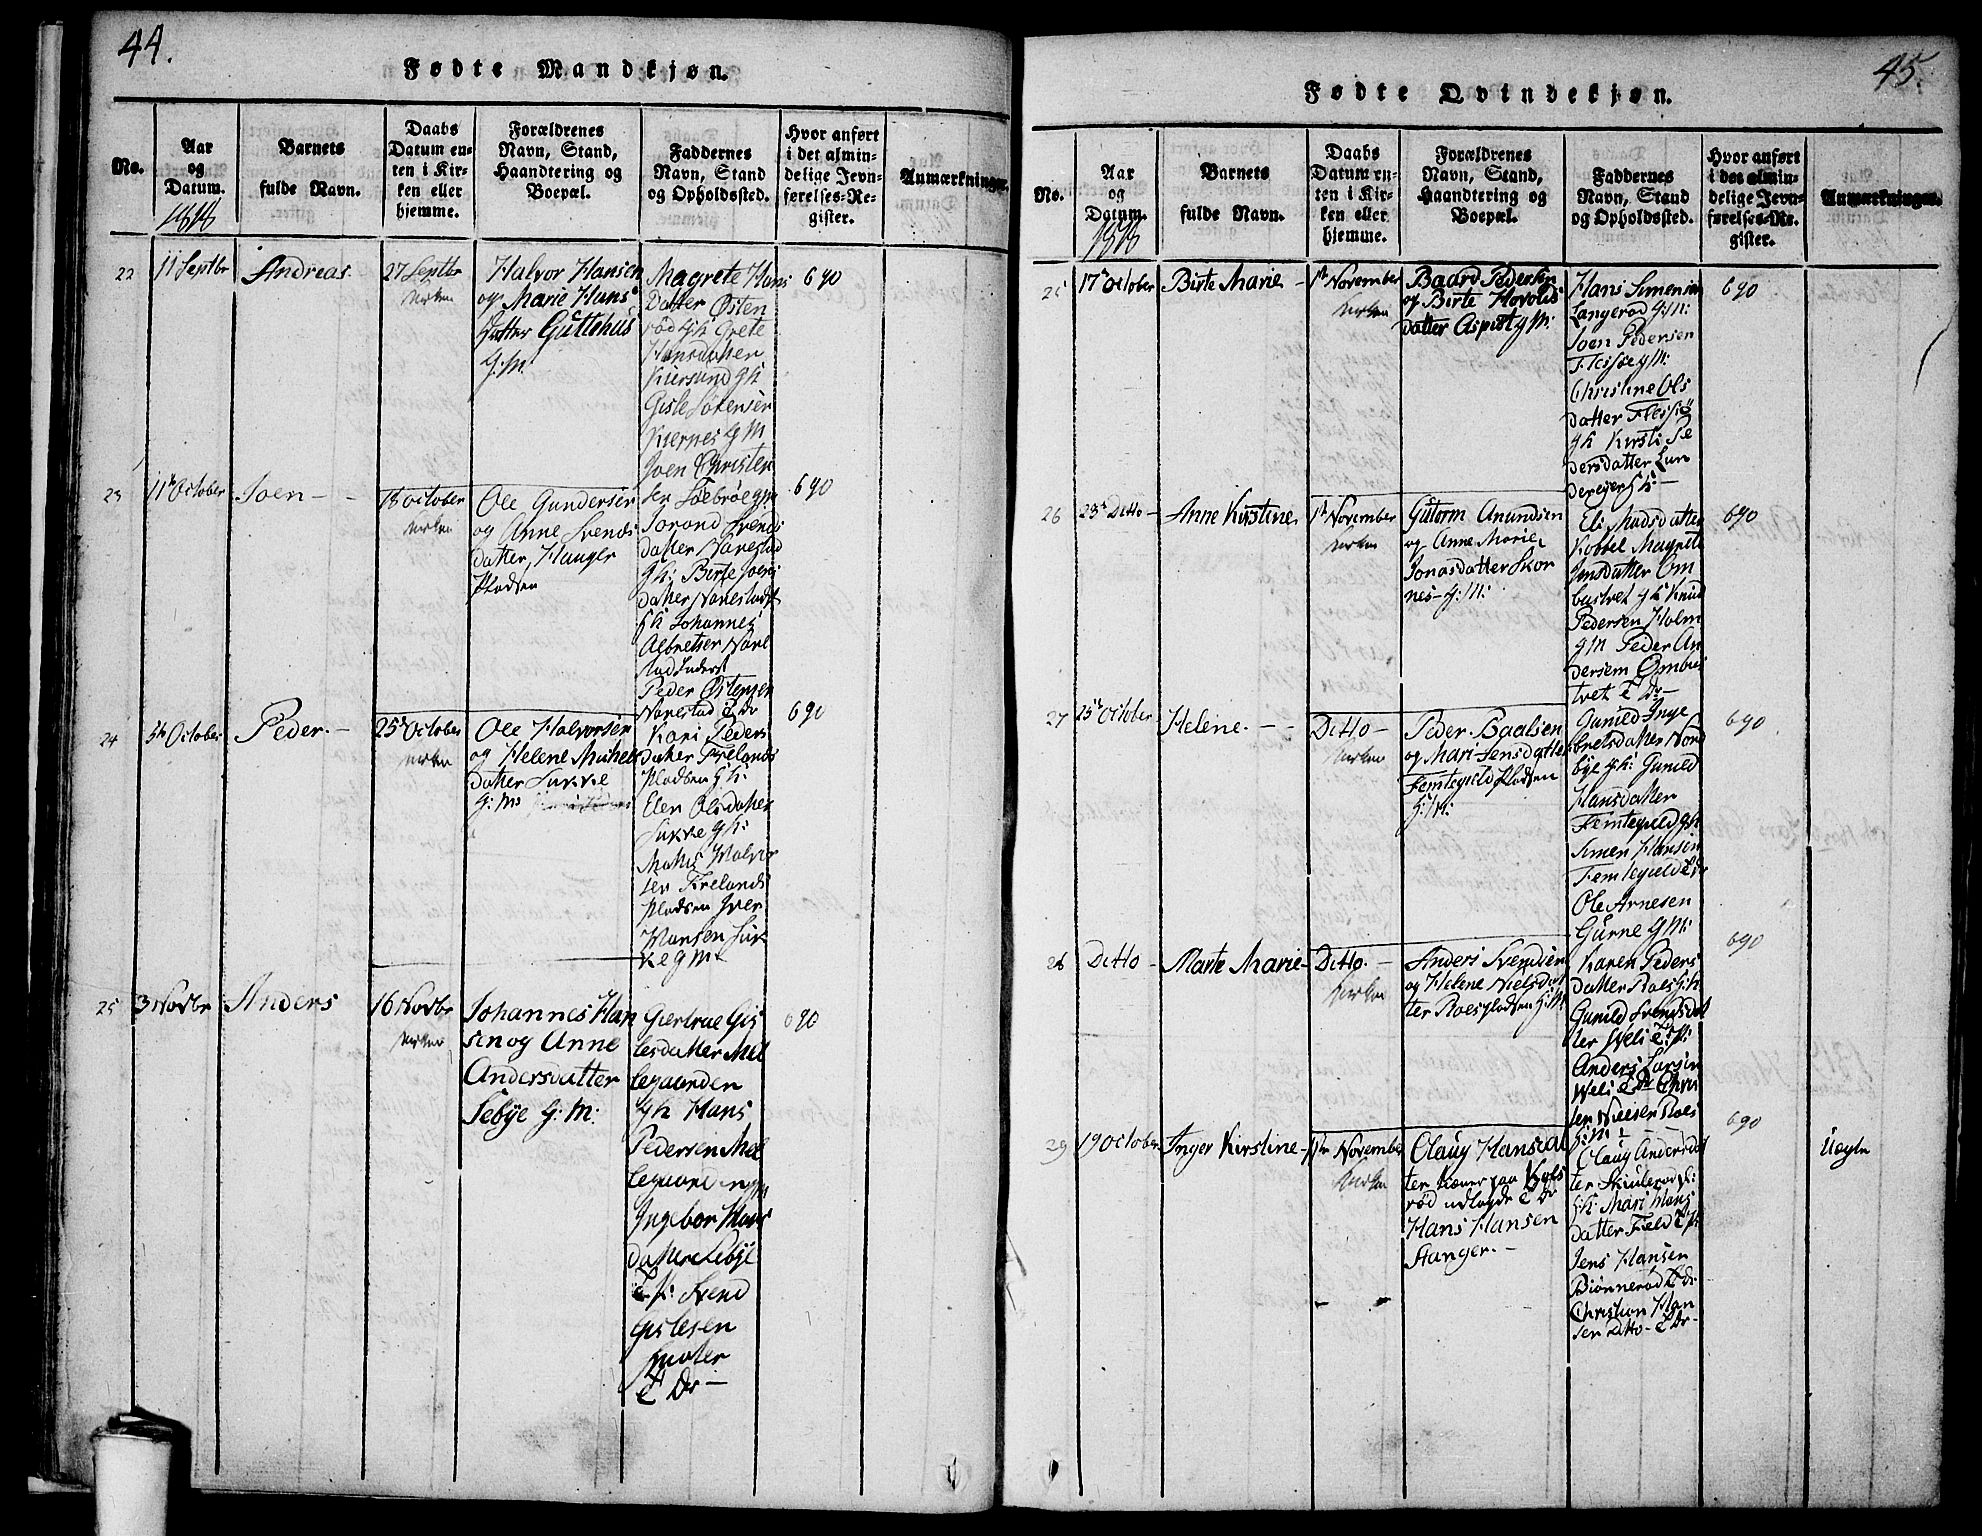 44.
Fødte Mandkjøn.
No.
Aar
og
Datum.
1818
Barnets
fulde Navn.
Daabs
Datum en-
ten i Kir-
ken eller
hjemme.
Forældrenes
Navn, Stand,
Haandtering og
Boepæl.
Faddernes
Navn, Stand
og Opholdssted.
Hvor anført
i det almin-
delige Jevn-
førelses-Re-
gister.
Anmærkninger.
22
11 Septbr
Andreas
27 Septbr
Kirken
Halvor Hansen
og Marie Hans
Datter Guttehus
G: M.
Magrete Hans
Datter Østen
rød G K Grete
Hansdatter
Kiersund G K
Gisle Sørensen
Kiernes G M
Joen Christen
sen Søebrøe G M
690
23
11te October
Joen - -
18 October
Kirken
Ole Gundersen
og Anne Svends
datter, Hauger
Pladsen
Jorond Svends
datter Narestad
G K: Birte Joens
datter Narestad
G K Johannes
Aelbretsen Nare
stad
Peder Østensen
Narestad E Dr
690
24
5te October
Peder. -
25 October
Kirken
Ole Halvorsen
og Helene Michels
datter Sukke
G: M:
Kari Peders
datter Frelands
Pladsen G K:
Elen Olsdatter
Sukke G K:
Mattis Halvor
sen Frelands
Pladsen Iver
Hansen Suk
ke G M
690
25
3 Novbr
Anders
16 Novbr
Kirken
Johannes Han
sen og Anne
Andersdatter
Sebye G: M:
Giertrue Gis
lesdatter Mel
legaarden
G K Hans
Pedersen Mel
legaarden G M
Ingebor Hans
datter Sebye
E P: Svend
Gislesen
E Dr -
690
45.
Fødte Qvindekjøn.
No.
Aar
og
Datum.
1818
Barnets
fulde Navn.
Daabs
Datum en-
ten i Kir-
ken eller
hjemme.
Forældrenes
Navn, Stand,
Haandtering og
Boepæl.
Faddernes
Navn, Stand
og Opholdssted.
Hvor anført
i det almin-
delige Jevn-
førelses-Re-
gister.
Anmærkninger.
25
17de October
Birte Marie -
1te November
Kirken
Baard Pedersen
og Birte Hovolds
datter Aspist G M:
Hans Simensen
Langerød G: M:
Joen Pedersen
Flesiøe G M:
Christine Ols
datter Flesiø
G K Kirsti Pe
dersdatter Lun
dereger G K: -
690
26
23de Ditto -
Anne Kirstine
1te November
Kirken
Gutorm Anundsen
og Anne Marie
Jonasdatter Skor
nes - G: M:
Eli Madsdatter
Kobbel Magrete
Jensdatter Om
bustvet G K Knud
Pedersen Holm
G M Peder An
dersen Ombus
tvet E Dr -
690
27
25de October
Helene. - -
Ditto -
Kirken
Peder Baalsen
og Mari Jensdatter
Femtegield Pladsen
G: M:
Gunild Inge
bretsdatter Nord
bye G K: Gunild
Hansdatter
Femtegield G K
Simen Hansen
Femtegield E Dr
Ole Arnesen
Gurne G M:
690
28
Ditto -
Marte Marie -
Ditto. -
Kirken
Anders Svendsen
og Helene Nielsdat
ter Roespladsen G: M:
Karen Peders
datter Roes G: K:
Gunild Svendsdat
ter Weli E P:
Anders Larsen
Weli E Dr Chris
ten Nielsen Roes
G: M: -
690
29
19 October
Inger Kirstine -
1te November
Kirken
Olaug Hansdat
ter Kaaner paa Kols
rød udlagde E Dr
Hans Hansen
Stanger. -
Olaug Andersdat
ter Skiulerød P:
G: K: Mari Hans
datter Field E P:
Jens Hansen
Biønnerød E Dr
Christian Han
sen Ditto - E Dr -
690
Uægte